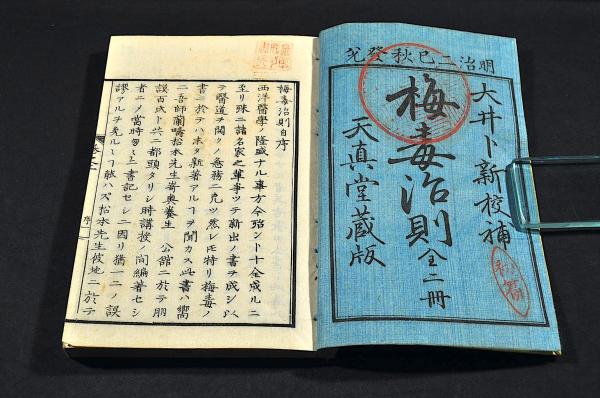 明治二己秋發兌
大井卜新校補
梅毒治則 全二冊
天真堂藏版
梅毒治則自序
西洋醫學ノ隆盛ナル事方今殆ント十全成ルニ
至リ殊ニ諸名家之ヲ事ツテ新出ノ書ヲ成シ以
テ醫道ヲ開クノ急務ニ充ツ然レ𪜈特リ梅毒ノ
書ニ於テハ本タ新著アルヿヲ聞カス此書ハ嚮
ニ吾師蘭疇松本先生嵜奥養生公館ニ於テ朋
謨百氏ト共ニ都頭タリシ時講授ノ間編著セシ
者ニノ當時匆々上書記セシニ因リ猶一二ノ誤
謬アルヲ免ルヿ能ハズ松本先生彼地ニ於テ
序一